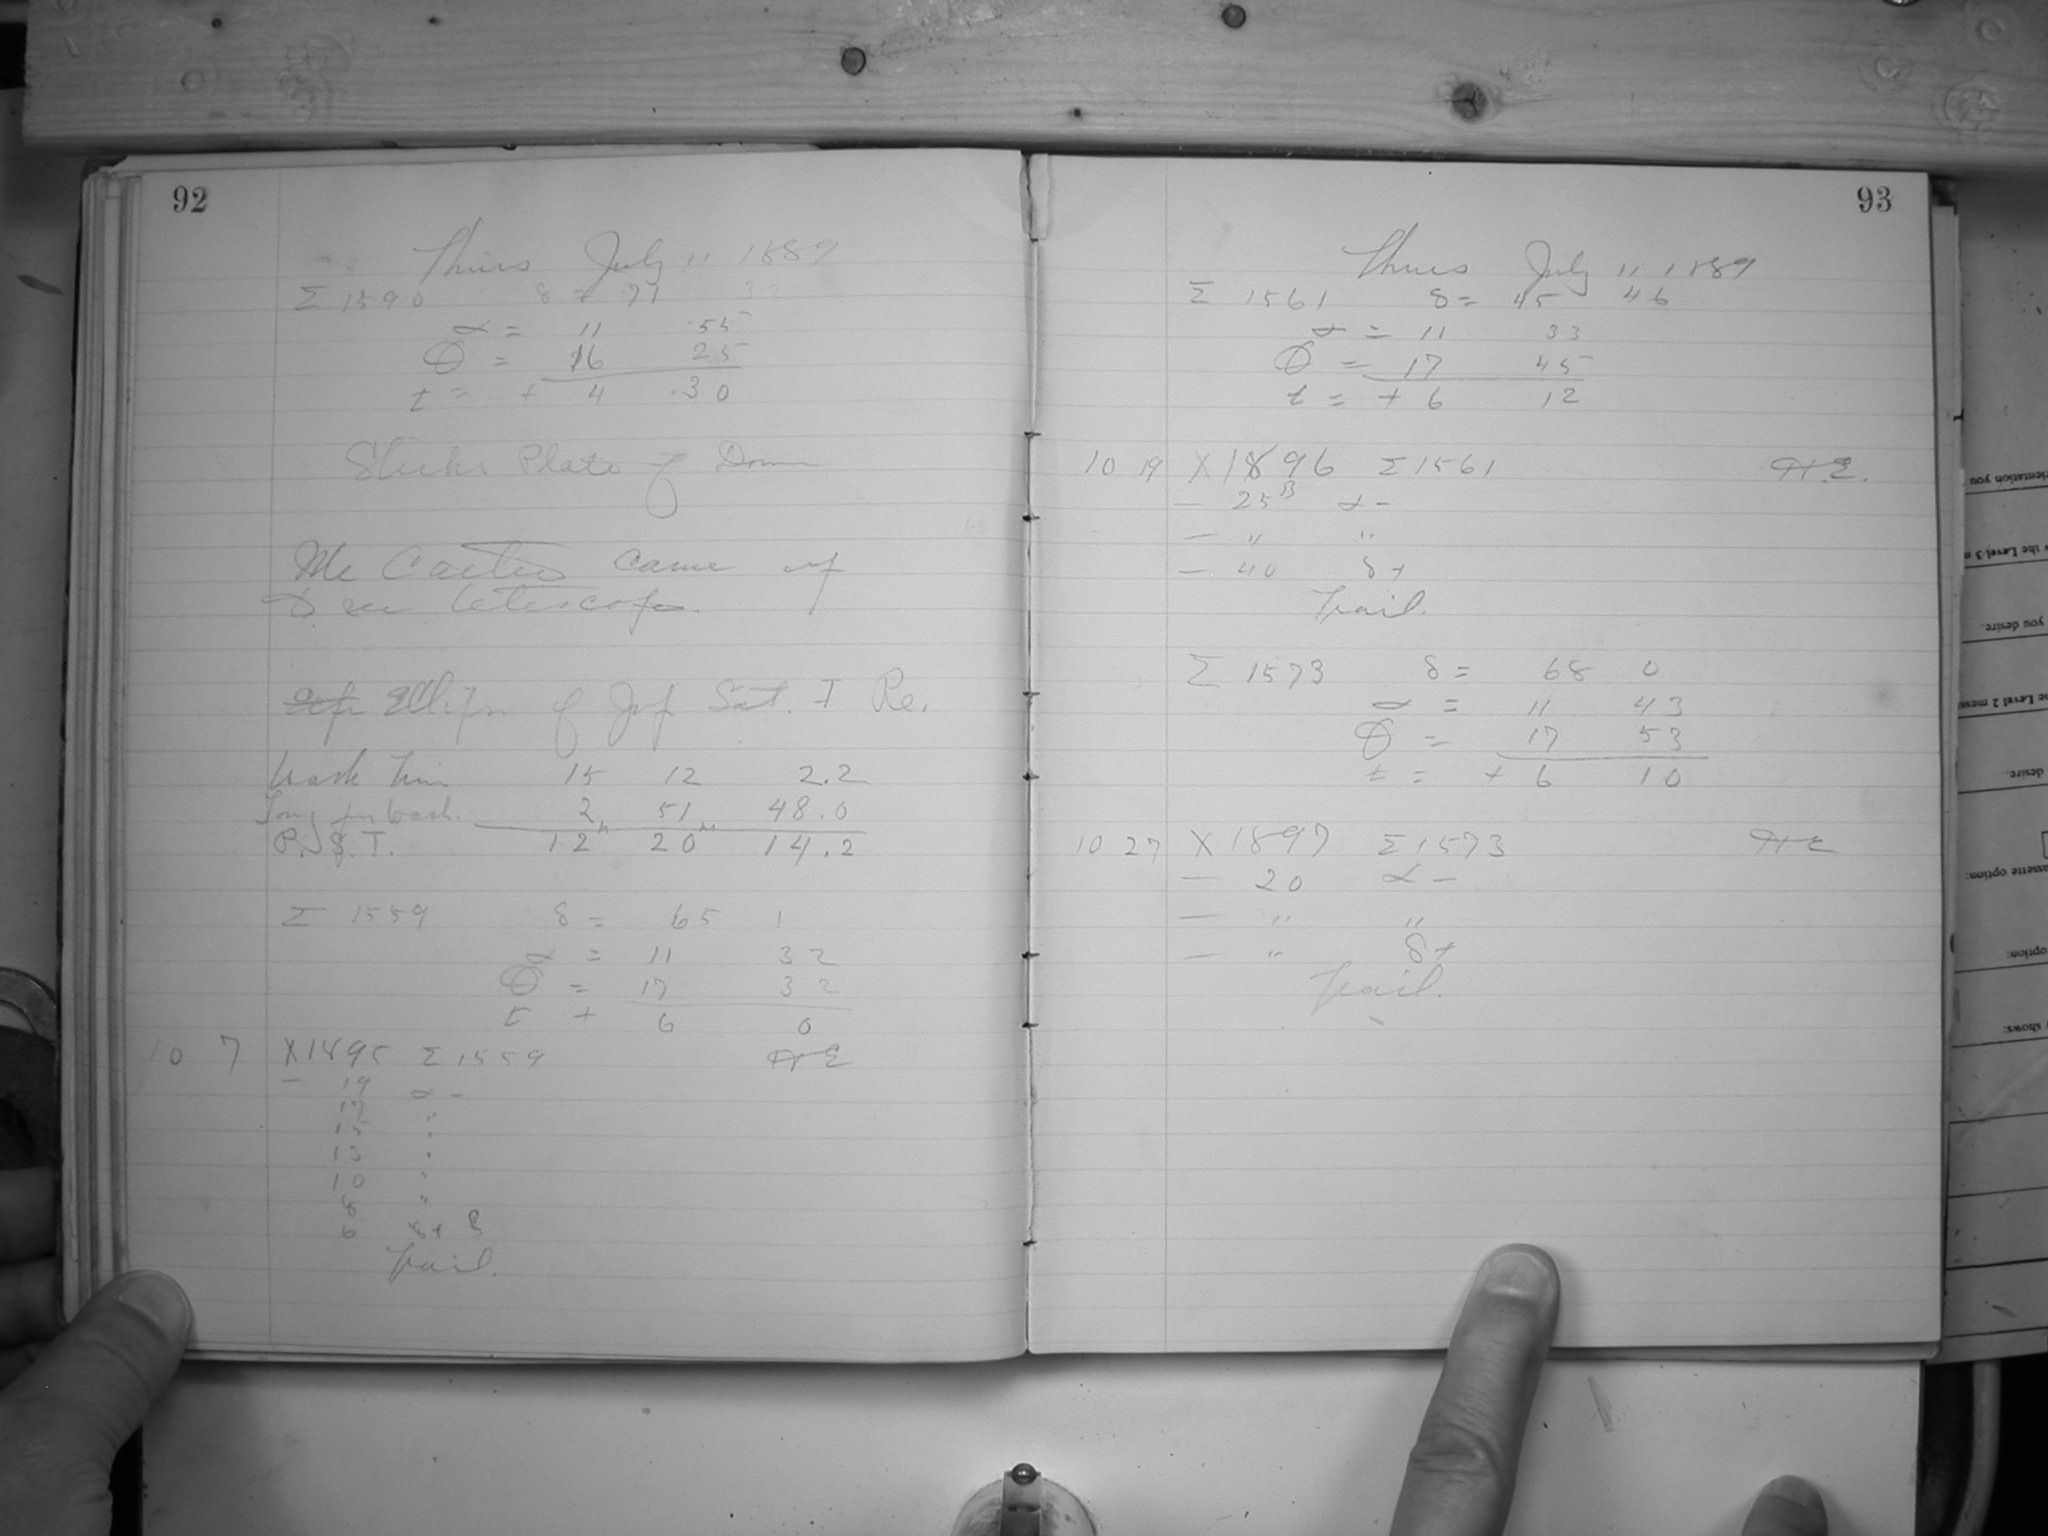 92
Thurs July 11 1889
Σ 1590 δ = 77 32
α = 11 55
θ = 16 25
t = + 4 30
Plate of Dome
Mr Carter came up
to see telescope.
Ellipse of Jup Sat. I Re.
Wash Time 15 12 2.2
Long fm Wash. 2 51 48.0
P.S.T. 12h 20m 14.2
Σ 1559 δ = 65 1
α = 11 32
θ = 17 32
t + 6 0
10 7 X1895 Σ1559 HE
– 19 α –
17 "
15 "
13 "
10 "
8 "
6 δ+
Trail.
93
Thurs July 11 1889
Σ 1561 δ = 45 46
α = 11 33
θ = 17 45
t = + 6 12
10 19 X1896 Σ1561 H.E.
– 25 B α –
– " "
– 40 δ +
Trail.
Σ 1573 δ = 68 0
α = 11 43
θ = 17 53
t = + 6 10
10 27 X1897 Σ1573 HE
– 20 α –
– " "
– " δ+
Trail.
desire.
you desire.
option:
shows: